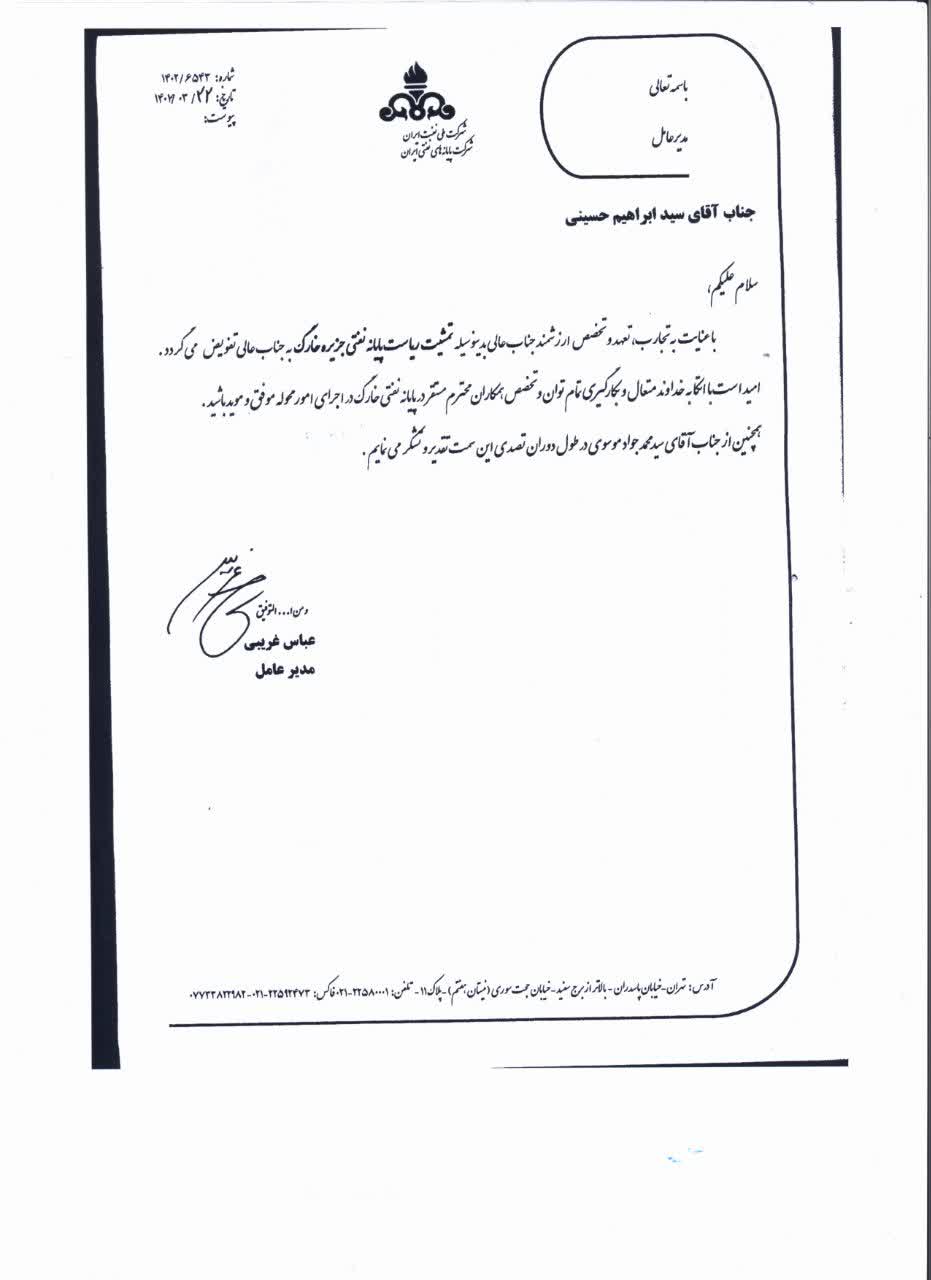 باسمه تعالی
مدیرعامل
شرکت ملی نفت ایران
شرکت پایانه های نفتی ایران
شماره: ۱۴۰۲/۶۵۴۳
تاریخ: ۱۴۰۲/۰۳/۲۲
پیوست:
جناب آقای سید ابراهیم حسینی
سلام علیکم،
با عنایت به تجارب، تعهد و تخصص ارزشمند جناب عالی بدینوسیله تمشیت ریاست پایانه نفتی جزیره خارک به جناب عالی تفویض می گردد.
امید است با اتکا به خداوند متعال و بکارگیری تمام توان و تخصص همکاران محترم مستقر در پایانه نفتی خارک در اجرای امور محوله موفق و موید باشید.
همچنین از جناب آقای سید محمد جواد موسوی در طول دوران تصدی این سمت تقدیر و تشکر می نمایم.
و من ا... التوفیق
عباس غریبی
مدیر عامل
آدرس: تهران-خیابان پاسدران - بالاتر از برج سفید-خیابان حجت سوری (نیستان هفتم)-پلاک ۱۱- تلفن: ۲۲۵۸۰۰۰۱-۰۲۱ فاکس: ۲۲۵۹۲۴۷۳-۰۲۱-۰۷۷۳۳۸۲۲۹۸۲